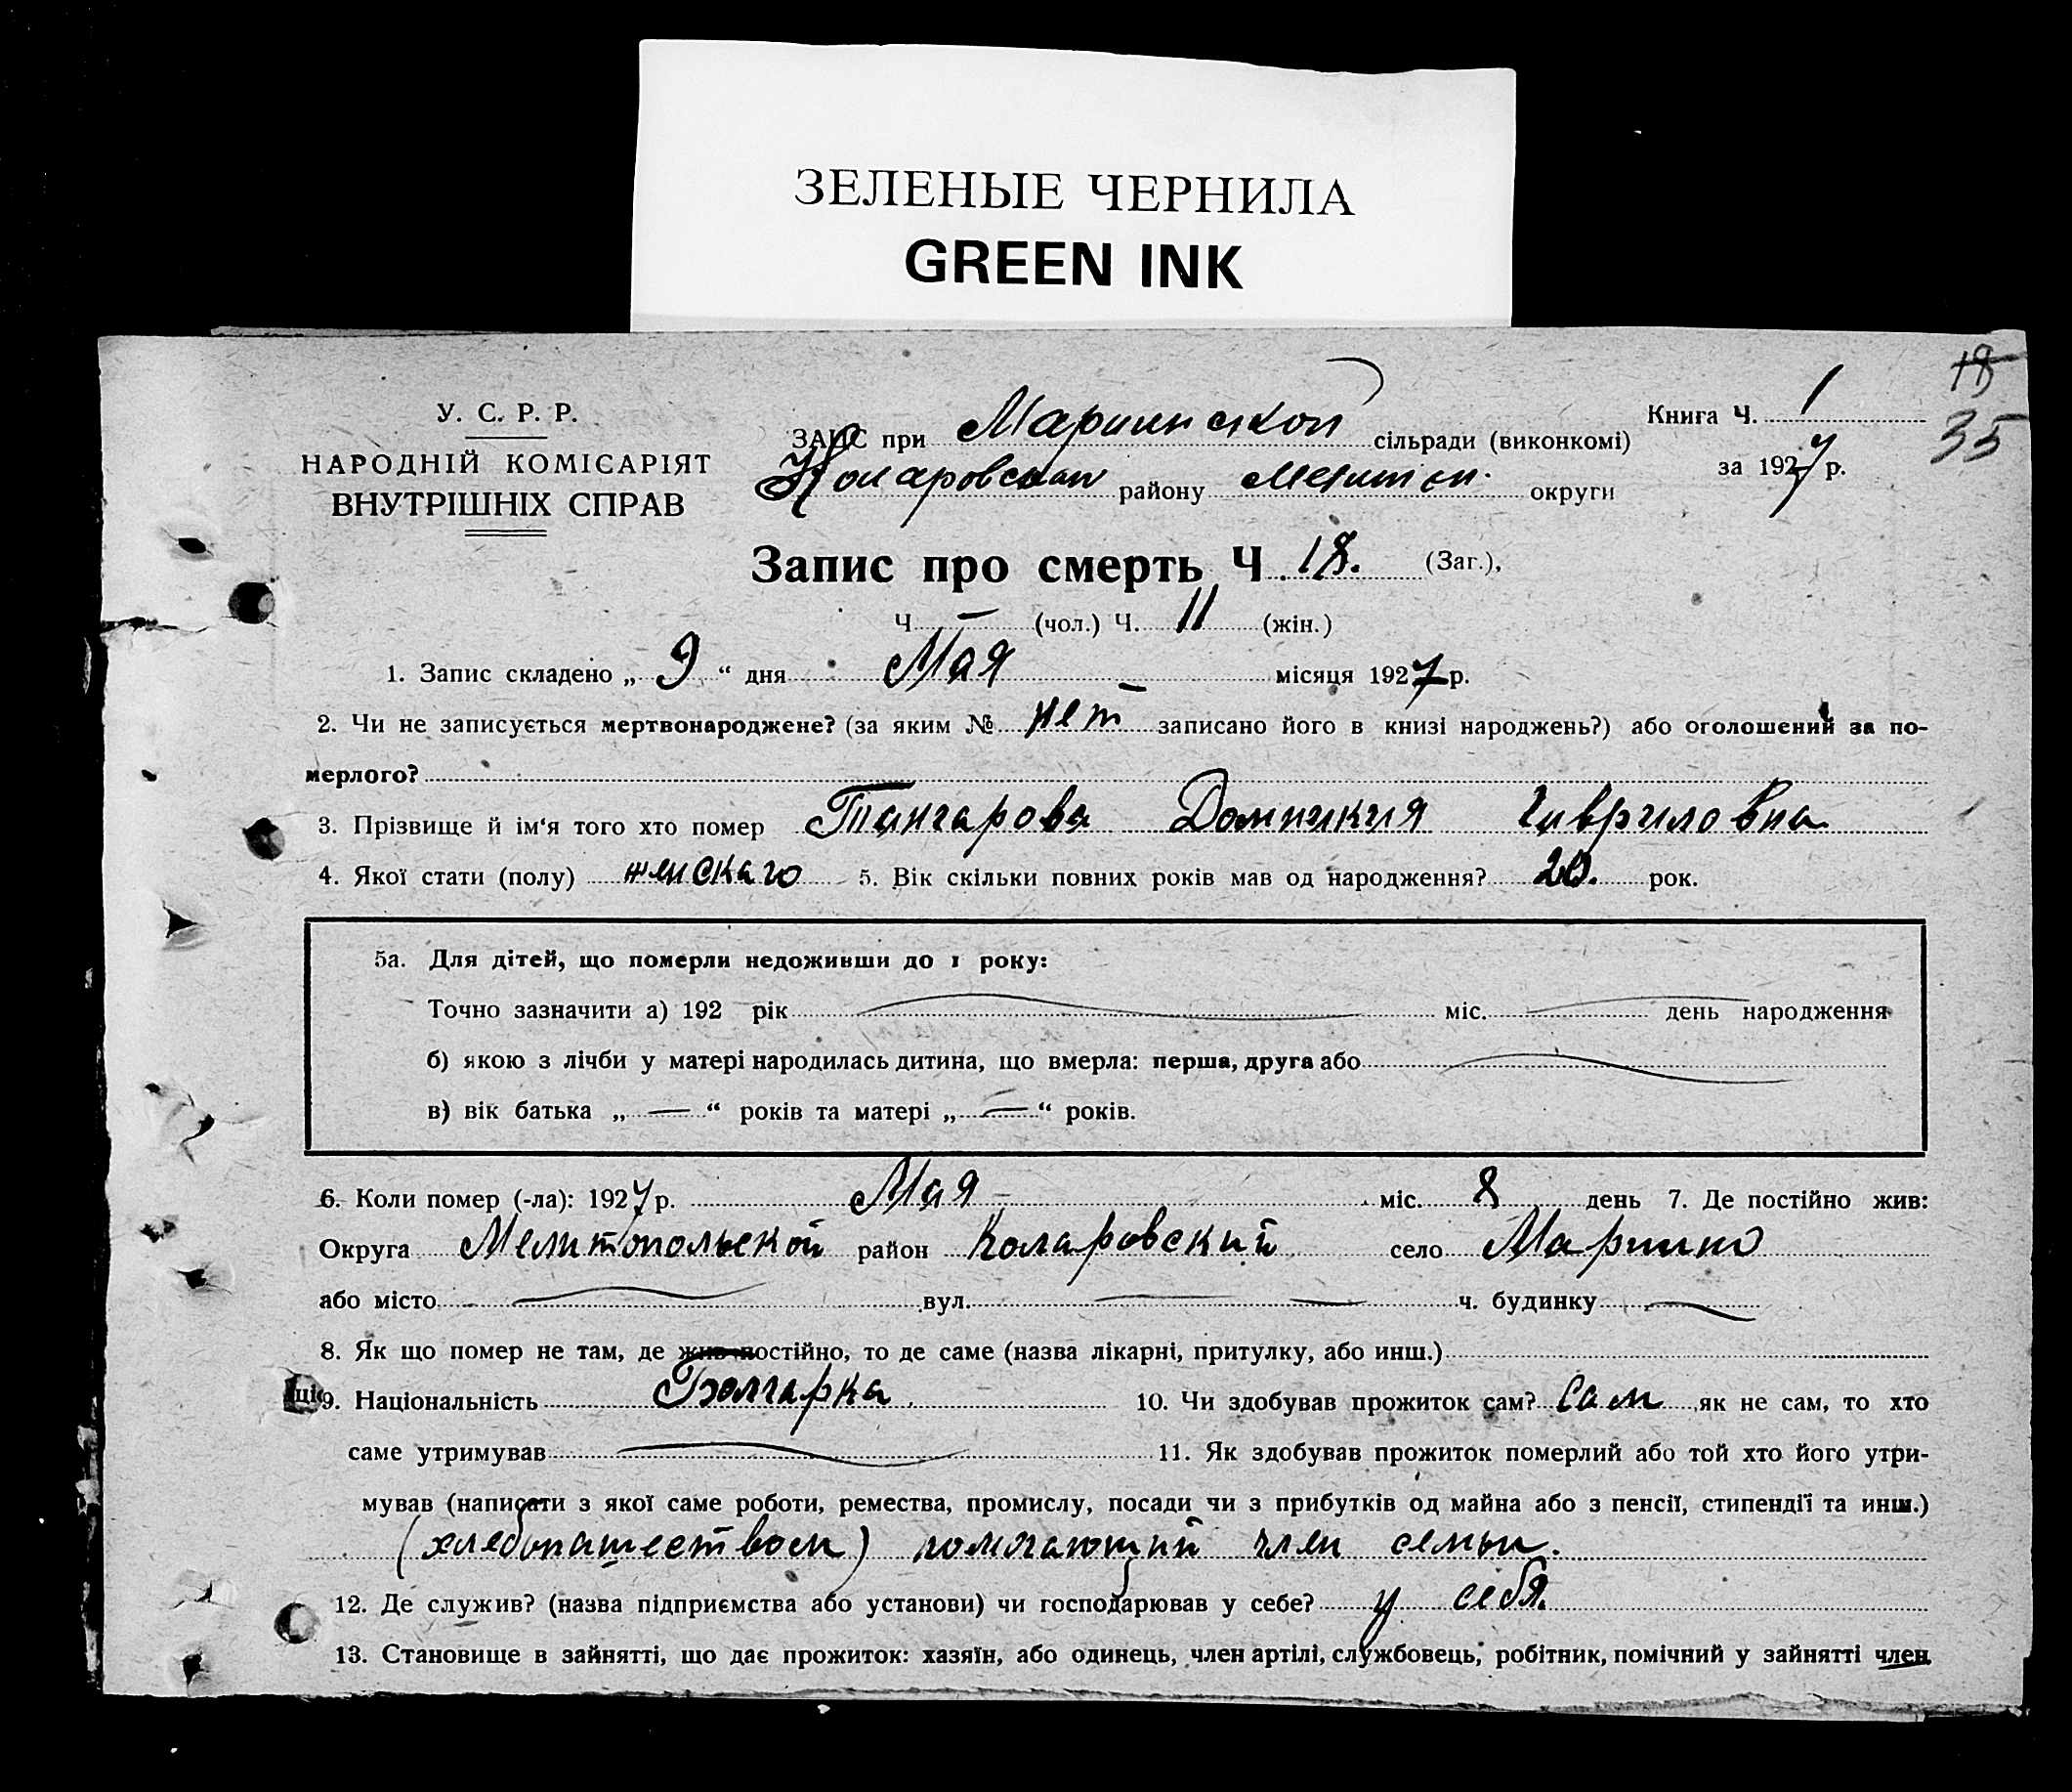 ЗЕЛЕНЫЕ ЧЕРНИЛА
GREEN INK
18
35
У. С. Р. Р.
НАРОДНІЙ КОМІСАРІЯТ
ВНУТРІШНІХ СПРАВ
ЗАГС при Мариинской сільради (виконкомі)
Коларовском району Мелитоп. округи
Книга Ч. 1
за 1927 р.
Запис про смерть Ч. 18. (Заг.),
Ч — (чол.) Ч. 11 (жін.)
1. Запис складено „ 9 “ дня Мая місяця 1927 р.
2. Чи не записується мертвонароджене? (за яким № нет записано його в книзі народжень?) або оголошений за по-
мерлого?
3. Прізвище й ім‘я того хто помер Тангарова Домникия Гавриловна
4. Якої стати (полу) женскаго 5. Вік скільки повних років мав од народження? 20. рок.
5а. Для дітей, що померли недоживши до 1 року:
Точно зазначити а) 192 рік міс. день народження
б) якою з лічби у матері народилась дитина, що вмерла: перша, друга або
в) вік батька „ — “ років та матері „ — “ років.
6. Коли помер (-ла): 1927 р. Мая міс. 8 день 7. Де постійно жив:
Округа Мелитопольской район Коларовский село Марино
або місто вул. ч. будинку
8. Як що помер не там, де жив постійно, то де саме (назва лікарні, притулку, або инш.)
9. Національність Болгарка 10. Чи здобував прожиток сам? Сам як не сам, то хто
саме утримував 11. Як здобував прожиток померлий або той хто його утри-
мував (написати з якої саме роботи, ремества, промислу, посади чи з прибутків од майна або з пенсії, стипендії та инш.)
(хлебопашеством) помогающий член семьи.
12. Де служив? (назва підприємства або установи) чи господарював у себе? у себя.
13. Становище в зайнятті, що дає прожиток: хазяїн, або одинець, член артілі, службовець, робітник, помічний у зайнятті член